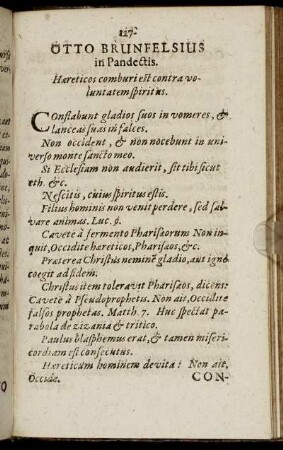 127.
OTTO BRUNFELSIUS
in Pandectis.
Hæreticos comburi est contra vo-
luntatem spiritus.
Conflabunt gladios suos in vomeres, &
lanceas suas in falces.
Non occident, & non nocebunt in uni-
verso monte sancto meo.
Si Ecclesiam non audierit, sit tibi sicut
eth. &c.
Nescitis, cuius spiritus estis.
Filius hominis non venit perdere, sed sal-
vare animas. Luc. 9.
Cavete à fermento Pharisæorum Non in-
quit, Occidite hæreticos, Pharisæos, &c.
Præterea Christus neminē gladio, aut igne
coegit ad fidem.
Christus item toleravit Pharisæos, dicens:
Cavete à Pseudoprophetis. Non ait, Occidite
falsos prophetas. Matth. 7. Huc spectat pa-
rabola de zizania & tritico.
Paulus blasphemus erat, & tamen miseri-
cordiam est consecutus.
Hæreticum hominem devita: Non ait,
Occide.
CON-